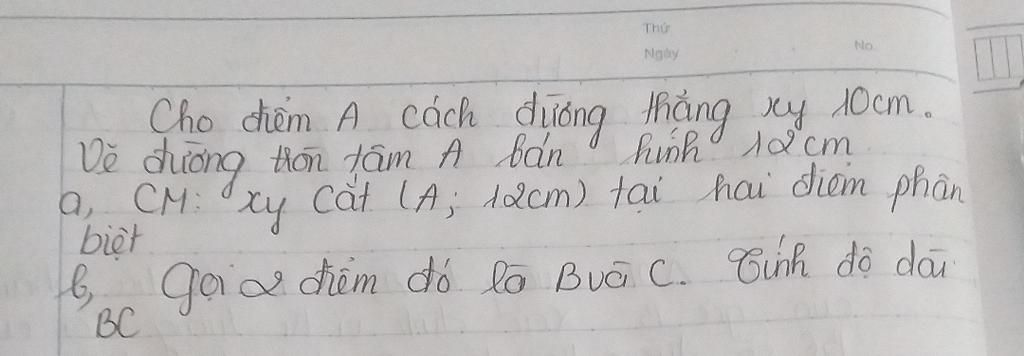 Thứ
Ngày
No
Cho điểm A cách đường thẳng xy 10cm.
Vẽ đường tròn tâm A bán kính 12cm
a, CM: xy cắt (A; 12cm) tại hai điểm phân
biệt
b, Gọi 2 điểm đó là B và C. Tính độ dài
BC